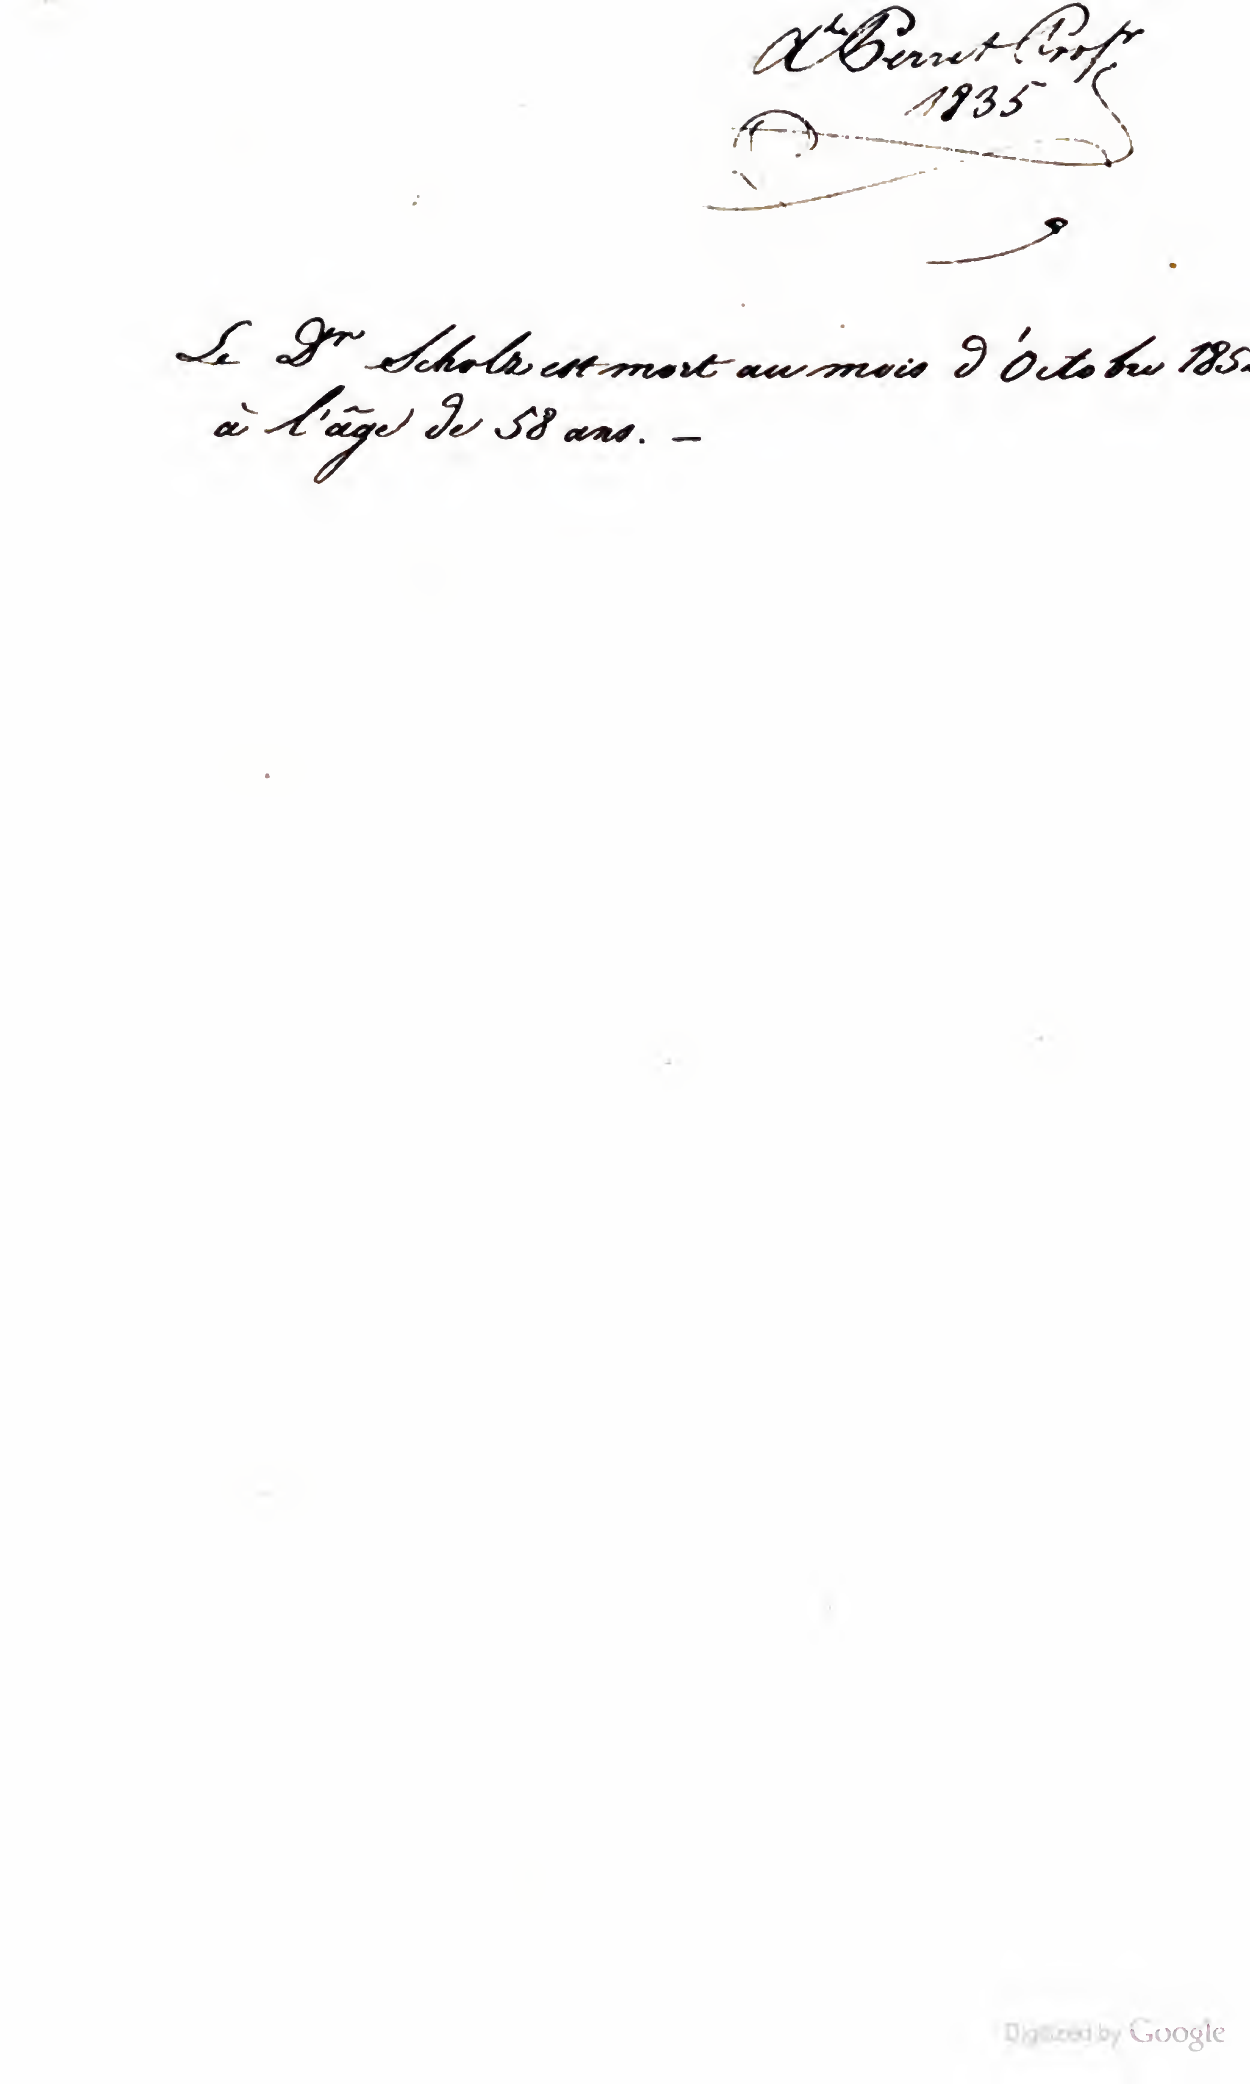 Ade Perret Profr
1835
Le Dr Scholz est mort au mois d'Octobre 185
à l'âge de 58 ans. —
Digitized by Google